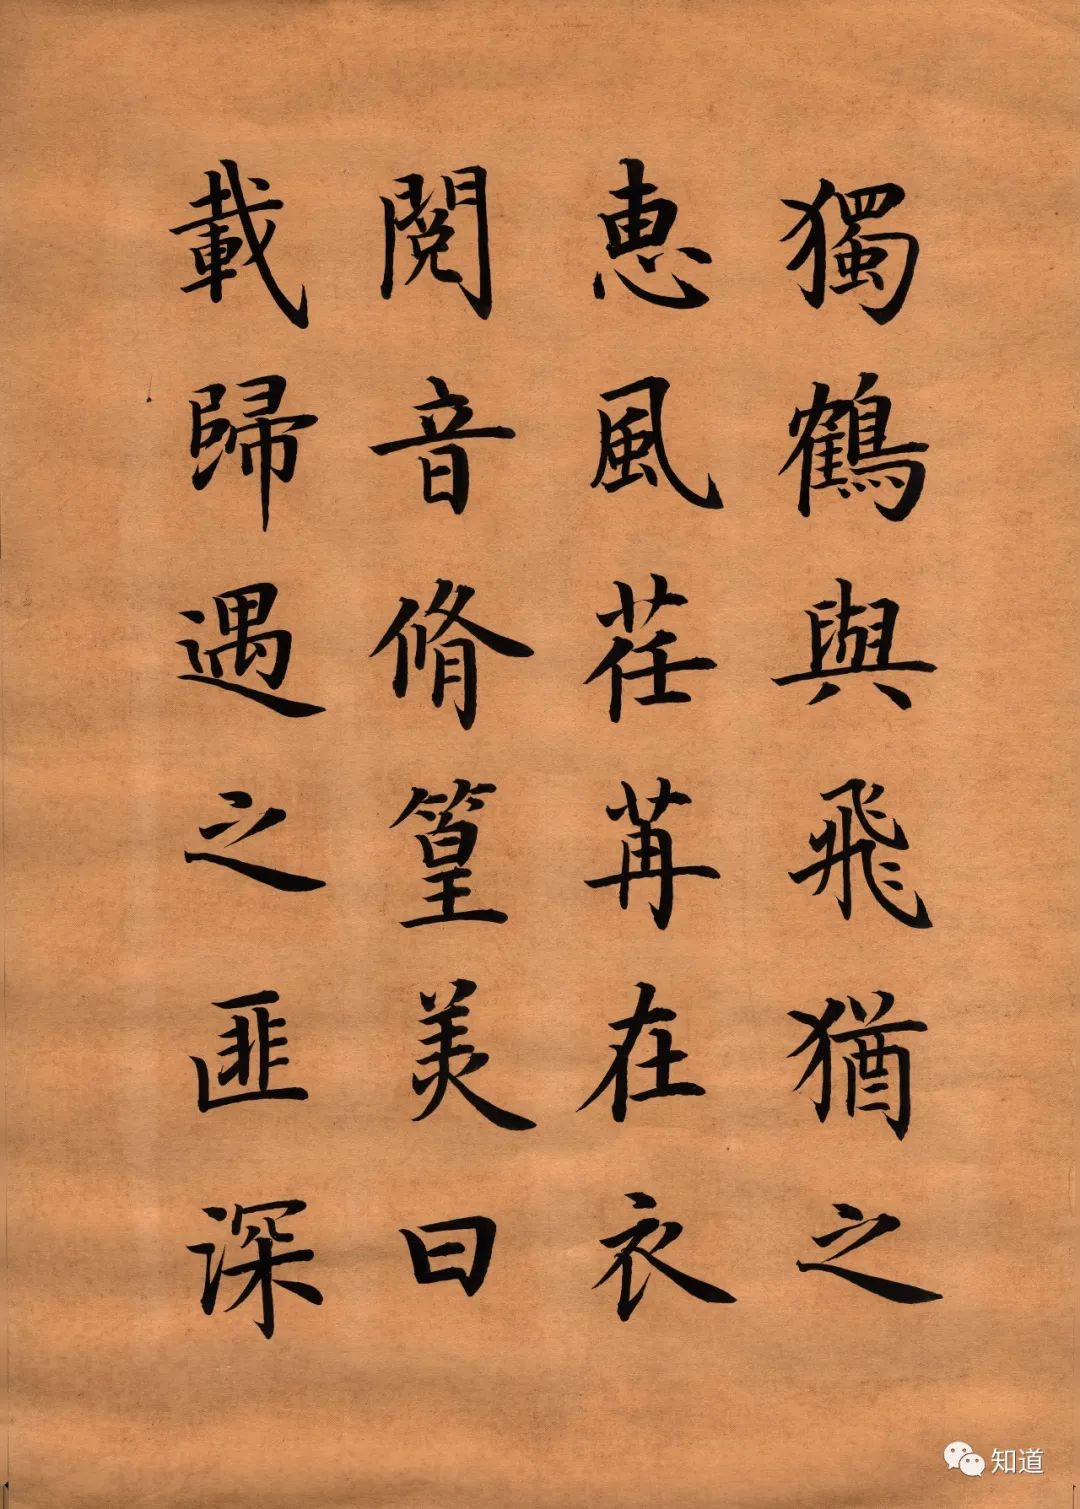 獨鶴與飛猶之
惠風荏苒在衣
閱音脩篁美曰
載歸遇之匪深
知道